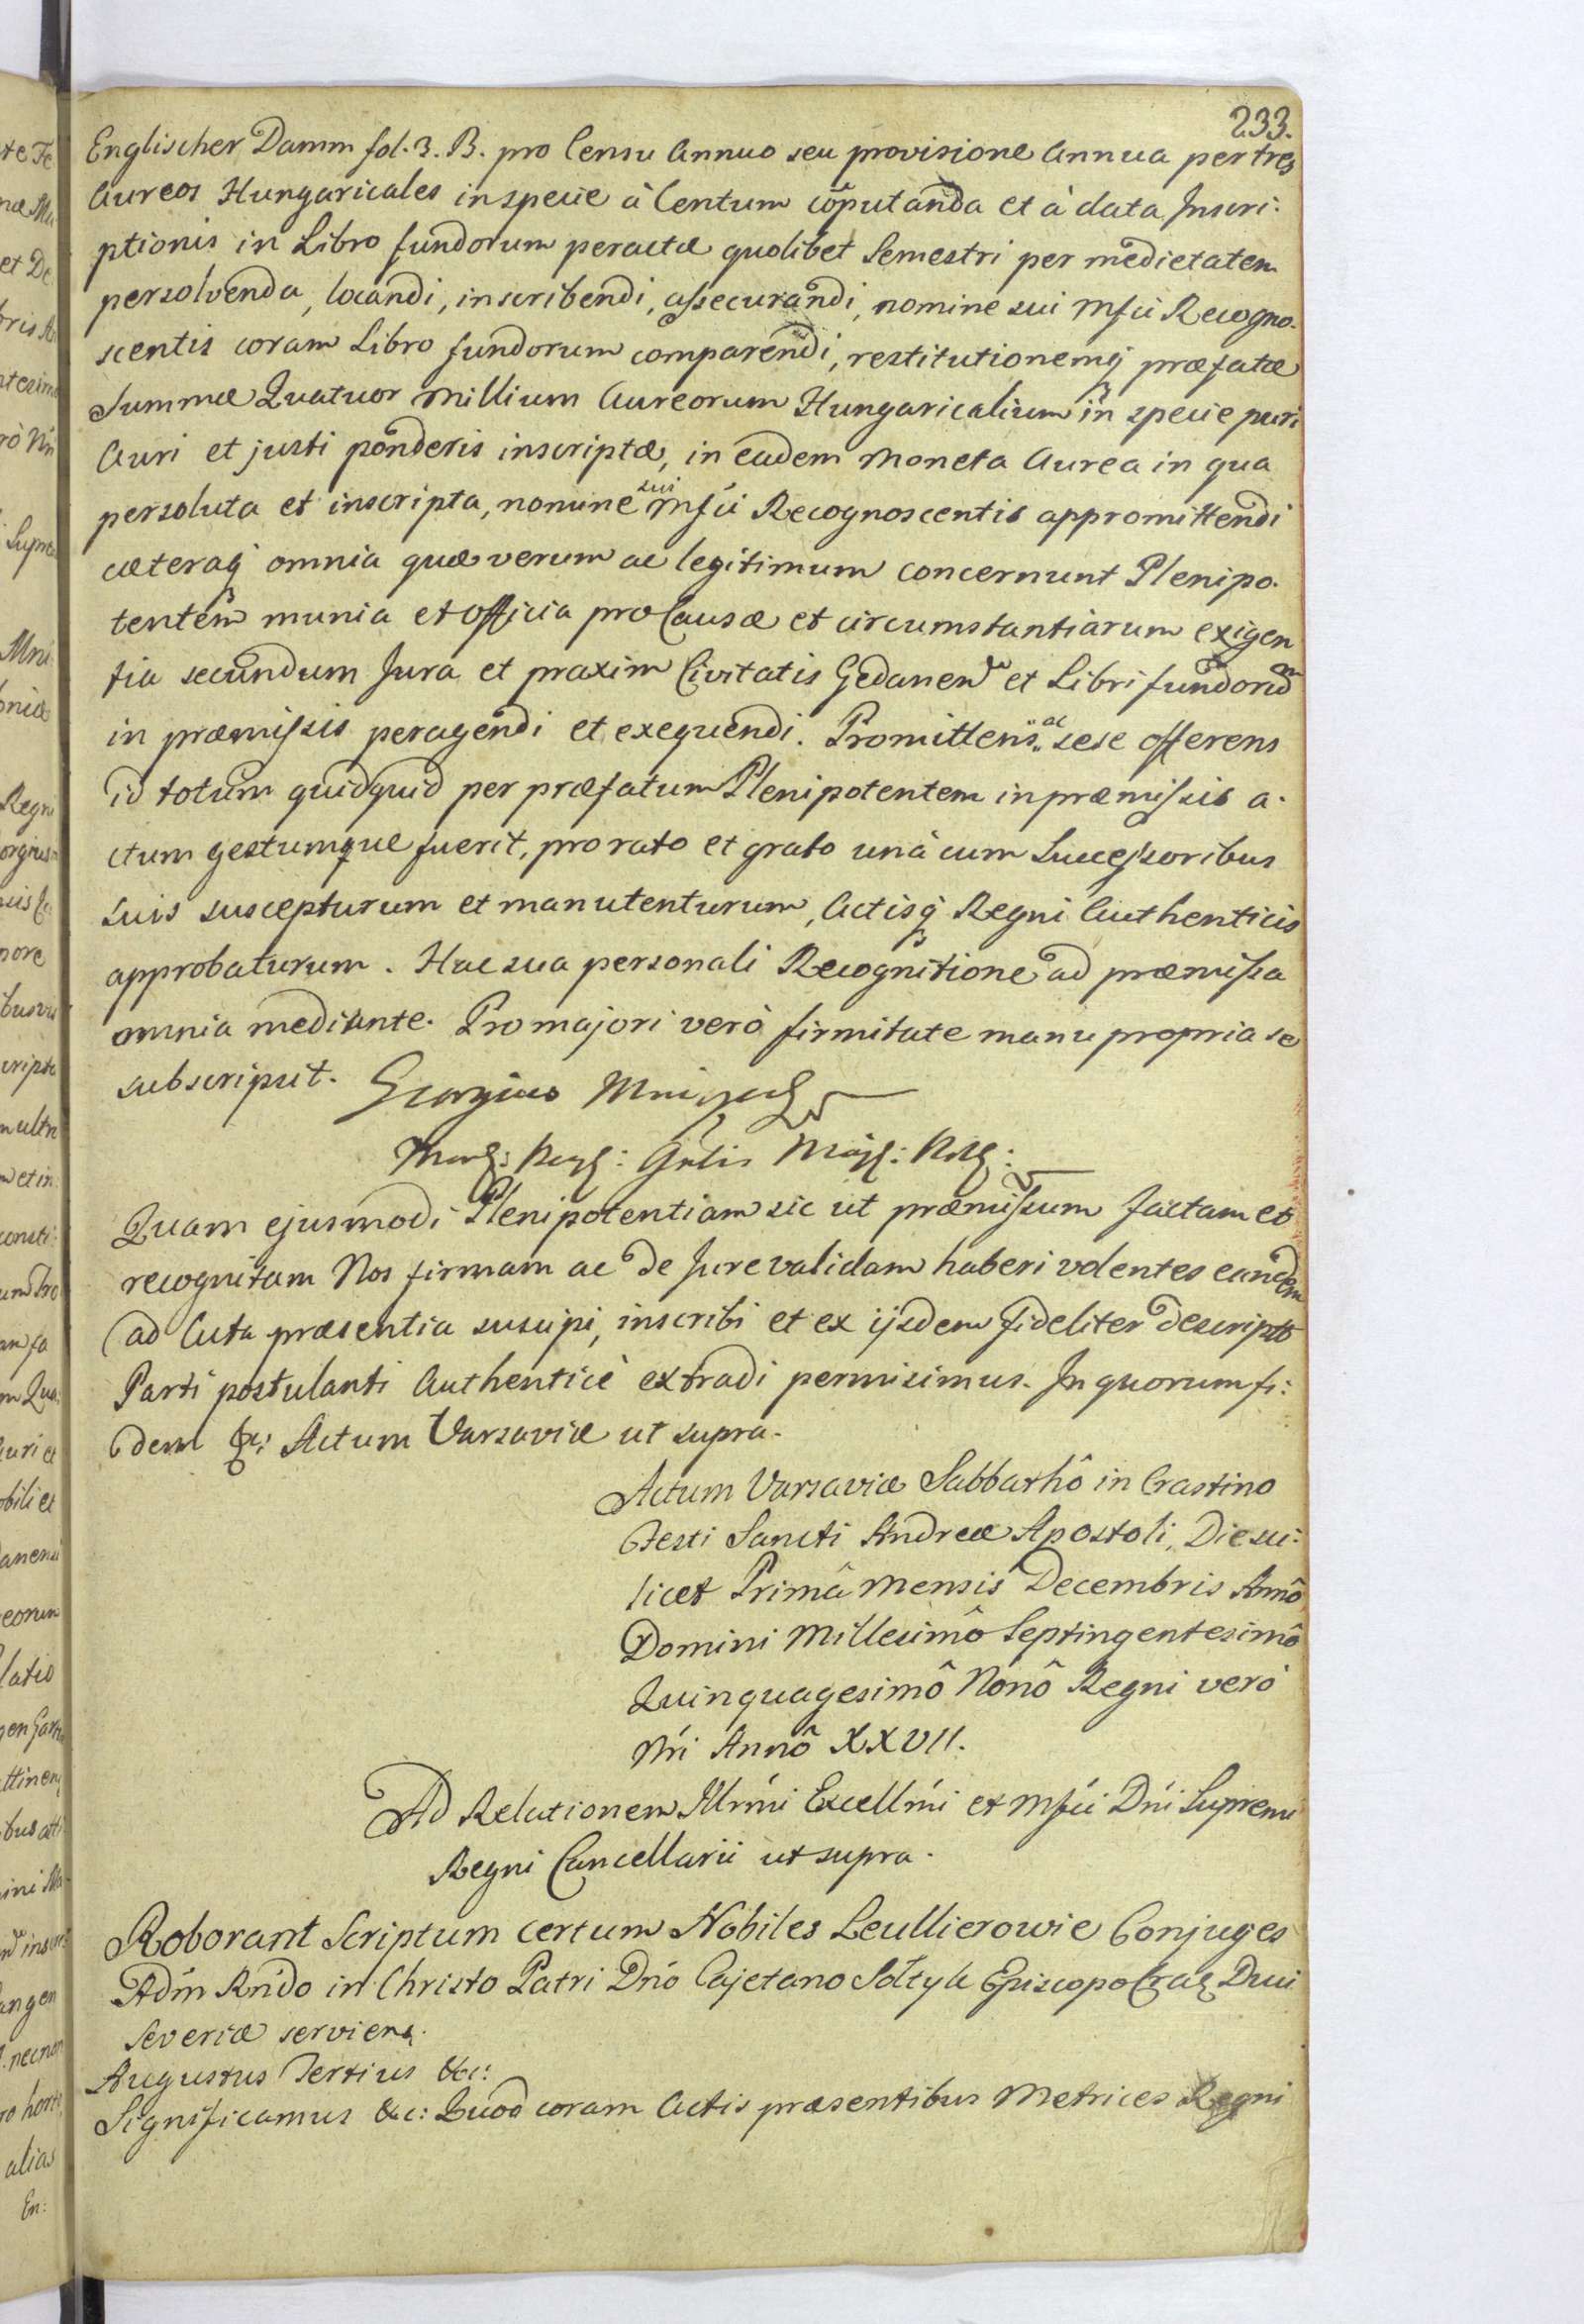 233.
Englischer Damm fol. 3. B. pro Censu Annuo seu provisione Annua per tres
Aureos Hungaricales in specie à Centum cõputanda et à data Inscri:
ptionis in Libro fundorum peractæ quolibet Semestri per medietatem
persolvenda, locandi, inscribendi, assecurandi, nomine sui Mfci Recogno-
scentis coram Libro fundorum comparendi, restitutionemq præfatæ
Summæ Quatuor Millium Aureorum Hungaricalium in specie puri
Auri et justi ponderis inscriptæ, in eadem Moneta Aurea in qua
persoluta et inscripta, nomine sui Mfci Recognoscentis appromittendi
cæteraq omnia quæ verum ac legitimum concernunt Plenipo-
tentem munia et officia pro Causæ et circumstantiarum exigen
tia secundum Jura et praxim Civitatis Gedanen et Libri fundorum
in præmissis peragendi et exequendi. Promittens ac sese offerens
id totum quidquid per præfatum Plenipotentem in præmissis a-
ctum gestumque fuerit, pro rato et grato unà cum Successoribus
suis suscepturum et manutenturum, Actisq Regni Authenticis
approbaturum. Hac sua personali Recognitione ad præmissa
omnia mediante. Pro majori verò firmitate manu propria se
subscripsit. Georgius Mniszech
Quam ejusmodi Plenipotentiam sic ut præmissum factam et
recognitam Nos firmam ac de Jure validam haberi volentes eandem
ad Acta præsentia suscipi, inscribi et ex ijsdem fideliter descripto
Parti postulanti Authenticè extradi permisimus. In quorum fi:
dem &c: Actum Varsaviæ ut supra.
Actum Varsaviæ Sabbathô in Crastino
Festi Sancti Andreæ Apostoli, Die sci:
licet Primâ Mensis Decembris Annô
Domini Millesimô Septingentesimô
Quinquagesimô Nonô Regni verò
Nri Annô XXVII.
Ad Relationem Illrmi Excellmi et Mfci Dni Supremi
Regni Cancellarii ut supra.
Roborant Scriptum certum Nobiles Leullierowie Conjuges
Adm Rndo in Christo Patri Dno Cajetano Sołtyk Episcopo Crac Duci
Severiæ serviens.
Augustus Tertius &c:
Significamus &c: Quod coram Actis præsentibus Metrices Regni